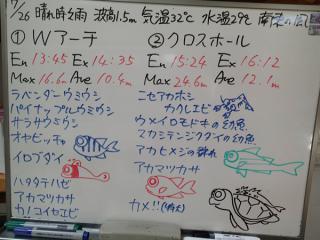 7/26 晴れ時々雨 波高1.5m 気温32℃ 水温29℃ 南東の風
① Wアーチ
En 13:45 Ex 14:35
Max 16.6m Ave 10.4m
ラベンダーウミウシ
パイナップルウミウシ
サラサウミウシ
オヤビッチャ
イロブダイ
ハタタテハゼ
アカマツカサ
カノコイセエビ
② クロスホール
En 15:24 Ex 16:12
Max 24.6m Ave 12.1m
ニセアカホシ
カクレエビ
ウメイロモドキの幼魚
マカテンジクダイの幼魚
アカヒメジの群れ
アカマツカサ
カメ!!